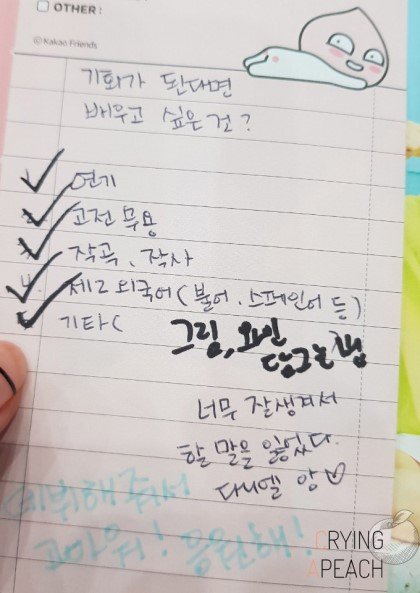 OTHER:
© Kakao Friends
기회가 된다면
배우고 싶은 건?
연기
고전 무용
작곡, 작사
제2 외국어 (불어, 스페인어 등)
기타 ( 그림, 와인
담그는 법
너무 잘생겨서
할 말을 잃었다.
다니엘 앙♡
데뷔해줘서
고마워! 응원해!
CRYING
APEACH